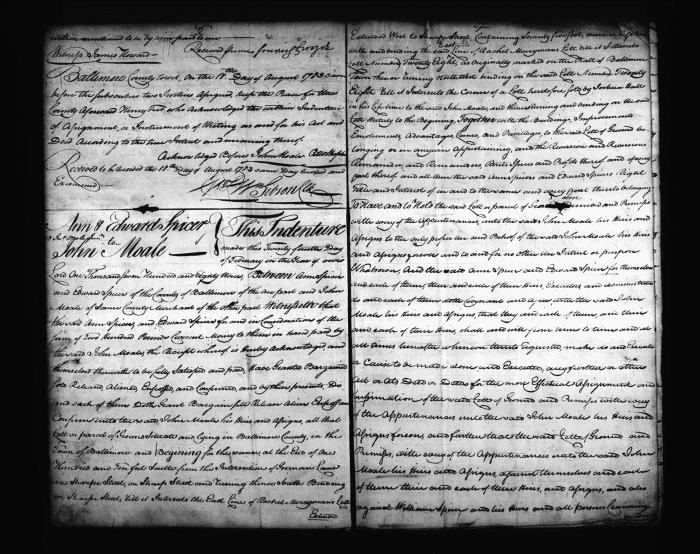 within mentioned to be by him paid to me
Witness James Howard
Baltimore County Court, On the 18th Day of August 1783 came
before the subscribers two Justices Assigned, keep the Peace for the
County Aforesaid Henry and who Acknowledged the within Indenture
of Assignment, or Instrument of Writing as and for his Act and
Deed According to the true Intent and meaning thereof
Acknowledged Before John Moale
Received to be recorded the 18th Day of August 1783 same Day recorded and
Examined
Wm Gibson Clk
Ann & Edward Spicer
to
John Moale
This Indenture
made this Twenty fourth Day
of February in the Year of our
Lord One Thousand seven Hundred and Eighty three, Between Ann Spicer
and Edward Spicer of the County of Baltimore of the one part and John
Moale of Same County Merchant of the other part Witnesseth that
the said Ann Spicer, and Edward Spicer for and in Consideration of the
Sum of two Hundred Pounds Current Money to them in hand paid by
the said John Moale, the Receipt whereof is Hereby Acknowledged, and
themselves therewith to be fully Satisfied and paid, Have Granted Bargained
Sold Released, Aliened, Enfeoffed and Confirmed, and by these presents, Do
and each of them Doth Grant Bargain sell Release Alien Enfeoff and
Confirm unto the said John Moale his Heirs and Assigns, all that
Lott or parcel of Ground Situate and lying in Baltimore County, in the
Town of Baltimore and Beginning for the same, at the End of One
Hundred and Ten feet South from the Intersection of German Lane
and Sharpe Street, on Sharpe Street and Running thence South Bounding
on Sharpe Street, till it Intersects the East Line of Rachel Merrymans Lott
Eastward
Eastward West to Sharpe Street, Containing Seventy five feet, more or less
with and binding the said Line of Rachel Merrymans Lott till it Intersects
Lott Number Twenty Eight, as Originally marked on the Platt of Baltimore
Town thence running North binding on the said Lott Number Twenty
Eight till it Intersects the Corner of a Lott heretofore sold by Joshua Hall
in his life time to the said John Moale, and thence running and binding on the said
Lott Westerly to the Beginning, Together with the Buildings, Improvements
Emoluments, Advantages, Ways, and Privileges, to the said Lott of Ground be
longing or in any wise Appertaining, and the Reversion and Reversions
Remainder, and Remainders, Rents Issues and Profits thereof and of every
part thereof and all them the said Ann Spicer and Edward Spicers Right
Title and Interest of in and to the same and every part thereof belonging
To Have and to Hold the said Lott or parcel of Ground and Premises
with every of the Appurtenances, unto the said John Moale his Heirs and
Assigns to the only proper use and Behoof of the said John Moale his Heirs
and Assigns forever and to and for no other use Intent or purpose
Whatsoever, And the said Ann Spicer and Edward Spicer for themselves
and each of them their and each of their Heirs, Executors and Administrators
do and each of them doth Covenant and agree with the said John
Moale his Heirs and Assigns, that they and each of them, their
and each of their Heirs, shall and will from time to time and at
all times hereafter when on thereto requested, make do and Execute
or Cause to be made done and Executed, any further or other
Act or Acts Deed or Deeds for the more Effectual Assignment and
Confirmation of the said Lotts of Ground and Premises with every
of the Appurtenances unto the said John Moale his Heirs and
Assigns forever, and further that the said Lotts of Ground and
Premises, with every of the Appurtenances unto the said John
Moale his Heirs and Assigns, against themselves and each
of them their and each of their Heirs, and Assigns, and also
against William Spicer and his Heirs and all persons Claiming